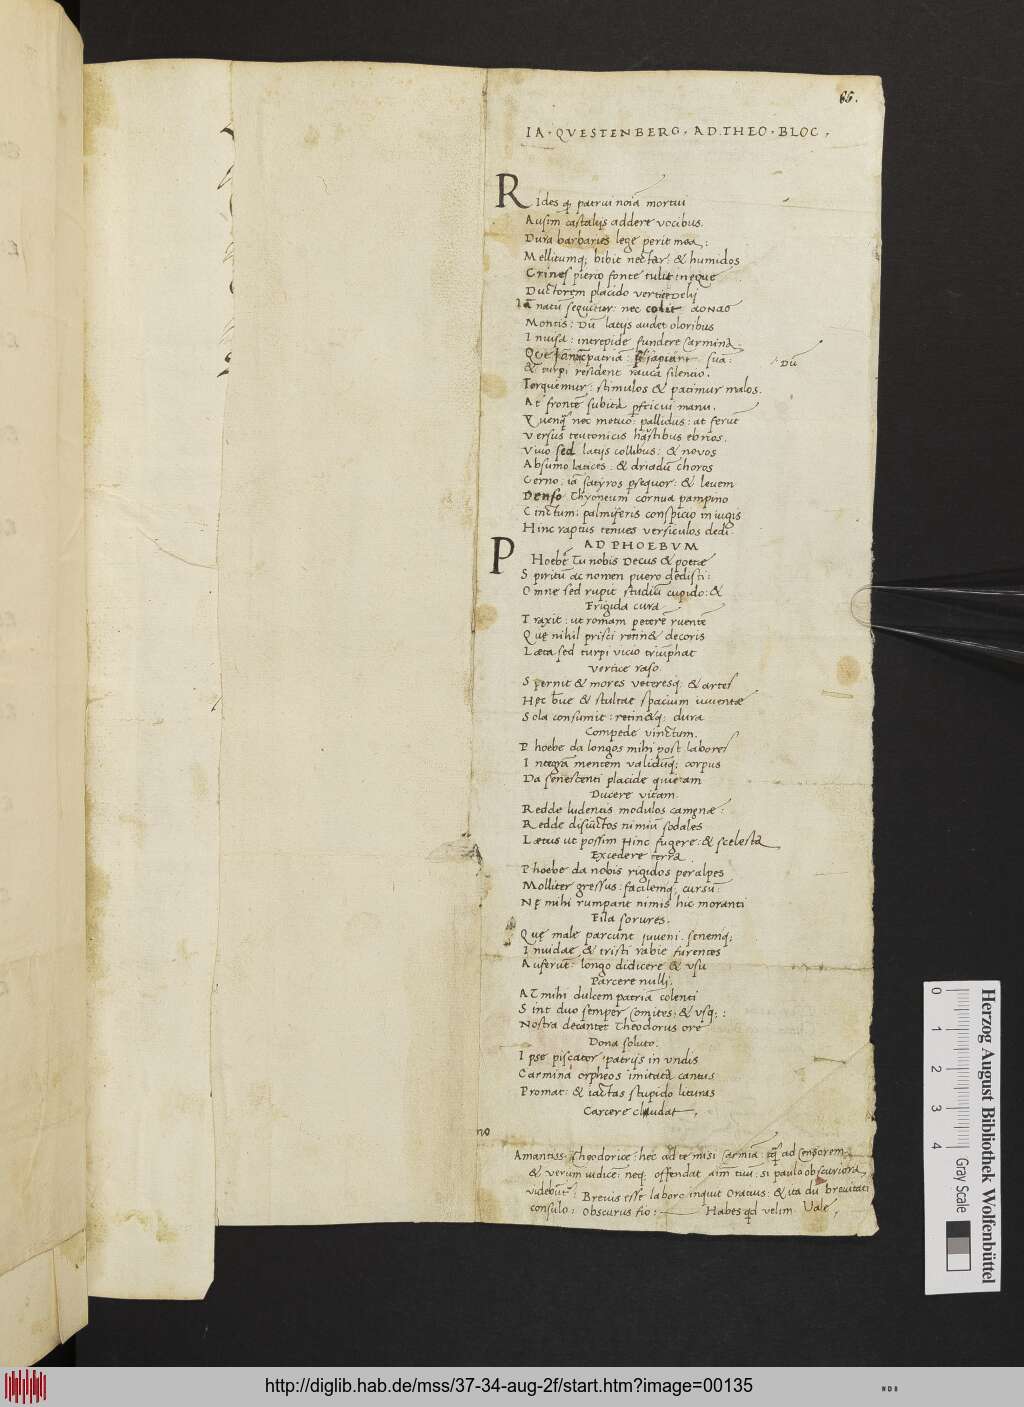 65.
IA · QVESTENBERG · AD · THEO · BLOC ,
Rides q patrui noīa mortui
Ausim castalijs addere vocibus.
Dura barbaries lege perit mea :
Mellitumq; bibit nectar : & humidos
Crines pierio fonte tulit : neque
Ductorem placido vertice Delij
Iā natū sequitur : nec colit aonas
Montis : Dū latijs audet oloribus
Inuisa : intrepide fundere carmina .
Que patriā : sapiant suā :
Dū
& turpi resident rauca silentio .
Torquemur : stimulos & patimur malos .
At frontē subita pfricui manu .
Quenq nec metuo : pallidus : at ferut
Versus teutonicis hastibus ebrios .
Viuo sed latijs collibus : & nouos
Absumo latices : & driadū choros
Cerno . iā satyros psequor : & leuem
Denso Thyoneum cornua pampino
Cinctum : palmiferis conspicio in iugis
Hinc raptus tenues versiculos dedi .
AD PHOEBVM
Phoebe Tu nobis Decus & poetæ
Spiritū ac nomen puero dedisti :
Omne sed rupit studiū cupido : &
Frigida cura
Traxit : ut romam peterē ruentē
Quę nihil prisci retinet decoris
Læta sed turpi vicio triūphat
Vertice raso .
Spernit & mores veteresq; & artes
Hęc breue & stultae spacium iuuentæ
Sola consumit : retinetq; dura
Compede vinctum .
Phoebe da longos mihi post labores
Integrā mentem validūq; corpus
Da senescenti placide quietam
Ducere vitam
Redde ludentis modulos camęnæ :
Redde disiūctos nimiū sodales
Lætus ut possim hinc fugere & scelesta
Excedere terra .
Phoebe da nobis rigidos per alpes
Molliter gressus : facilemq; cursū :
Nę mihi rumpant nimis hic moranti
Fila sorures .
Quę male parcunt iuueni . senemq;
Inuidae & tristi rabie furentes
Auferūt : longo didicere & vsu
Parcere nulli .
AT mihi dulcem patriā colenti
Sint duo semper comites : & vsq; :
Nostra decantet Theodorus ore
Dona soluto .
Ipse piscator : patrijs in vndis
Carmina orpheos imitata cantus
Promat : & iactas stupido lituras
Carcere claudat .
no
Amantiss Theodorice : hec ad te misi carmīa : tq ad Censorem
& verum iudicē : neq; offendat aīm tuū : si paulo obscuriora
videbūt Breuis esse laboro inquit Oratius : & ita dū breuitati
consulo : obscurus fio : Habes qd velim Vale ,
Herzog August Bibliothek Wolfenbüttel
0 1 2 3 4 Gray Scale
http://diglib.hab.de/mss/37-34-aug-2f/start.htm?image=00135